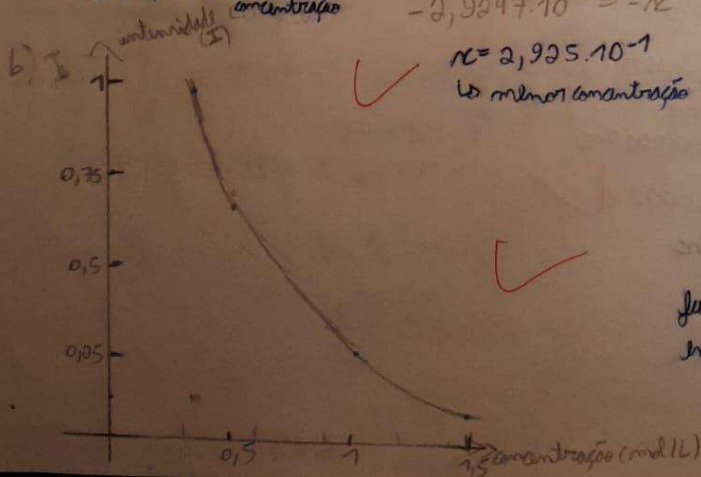 concentração
-2,9247.10 = -x
b) I
intensidade
(I)
x = 2,925.10-1
↳ menor concentração
1
0,75
0,5
0,25
0,5
1
1,5
concentração (mol/L)